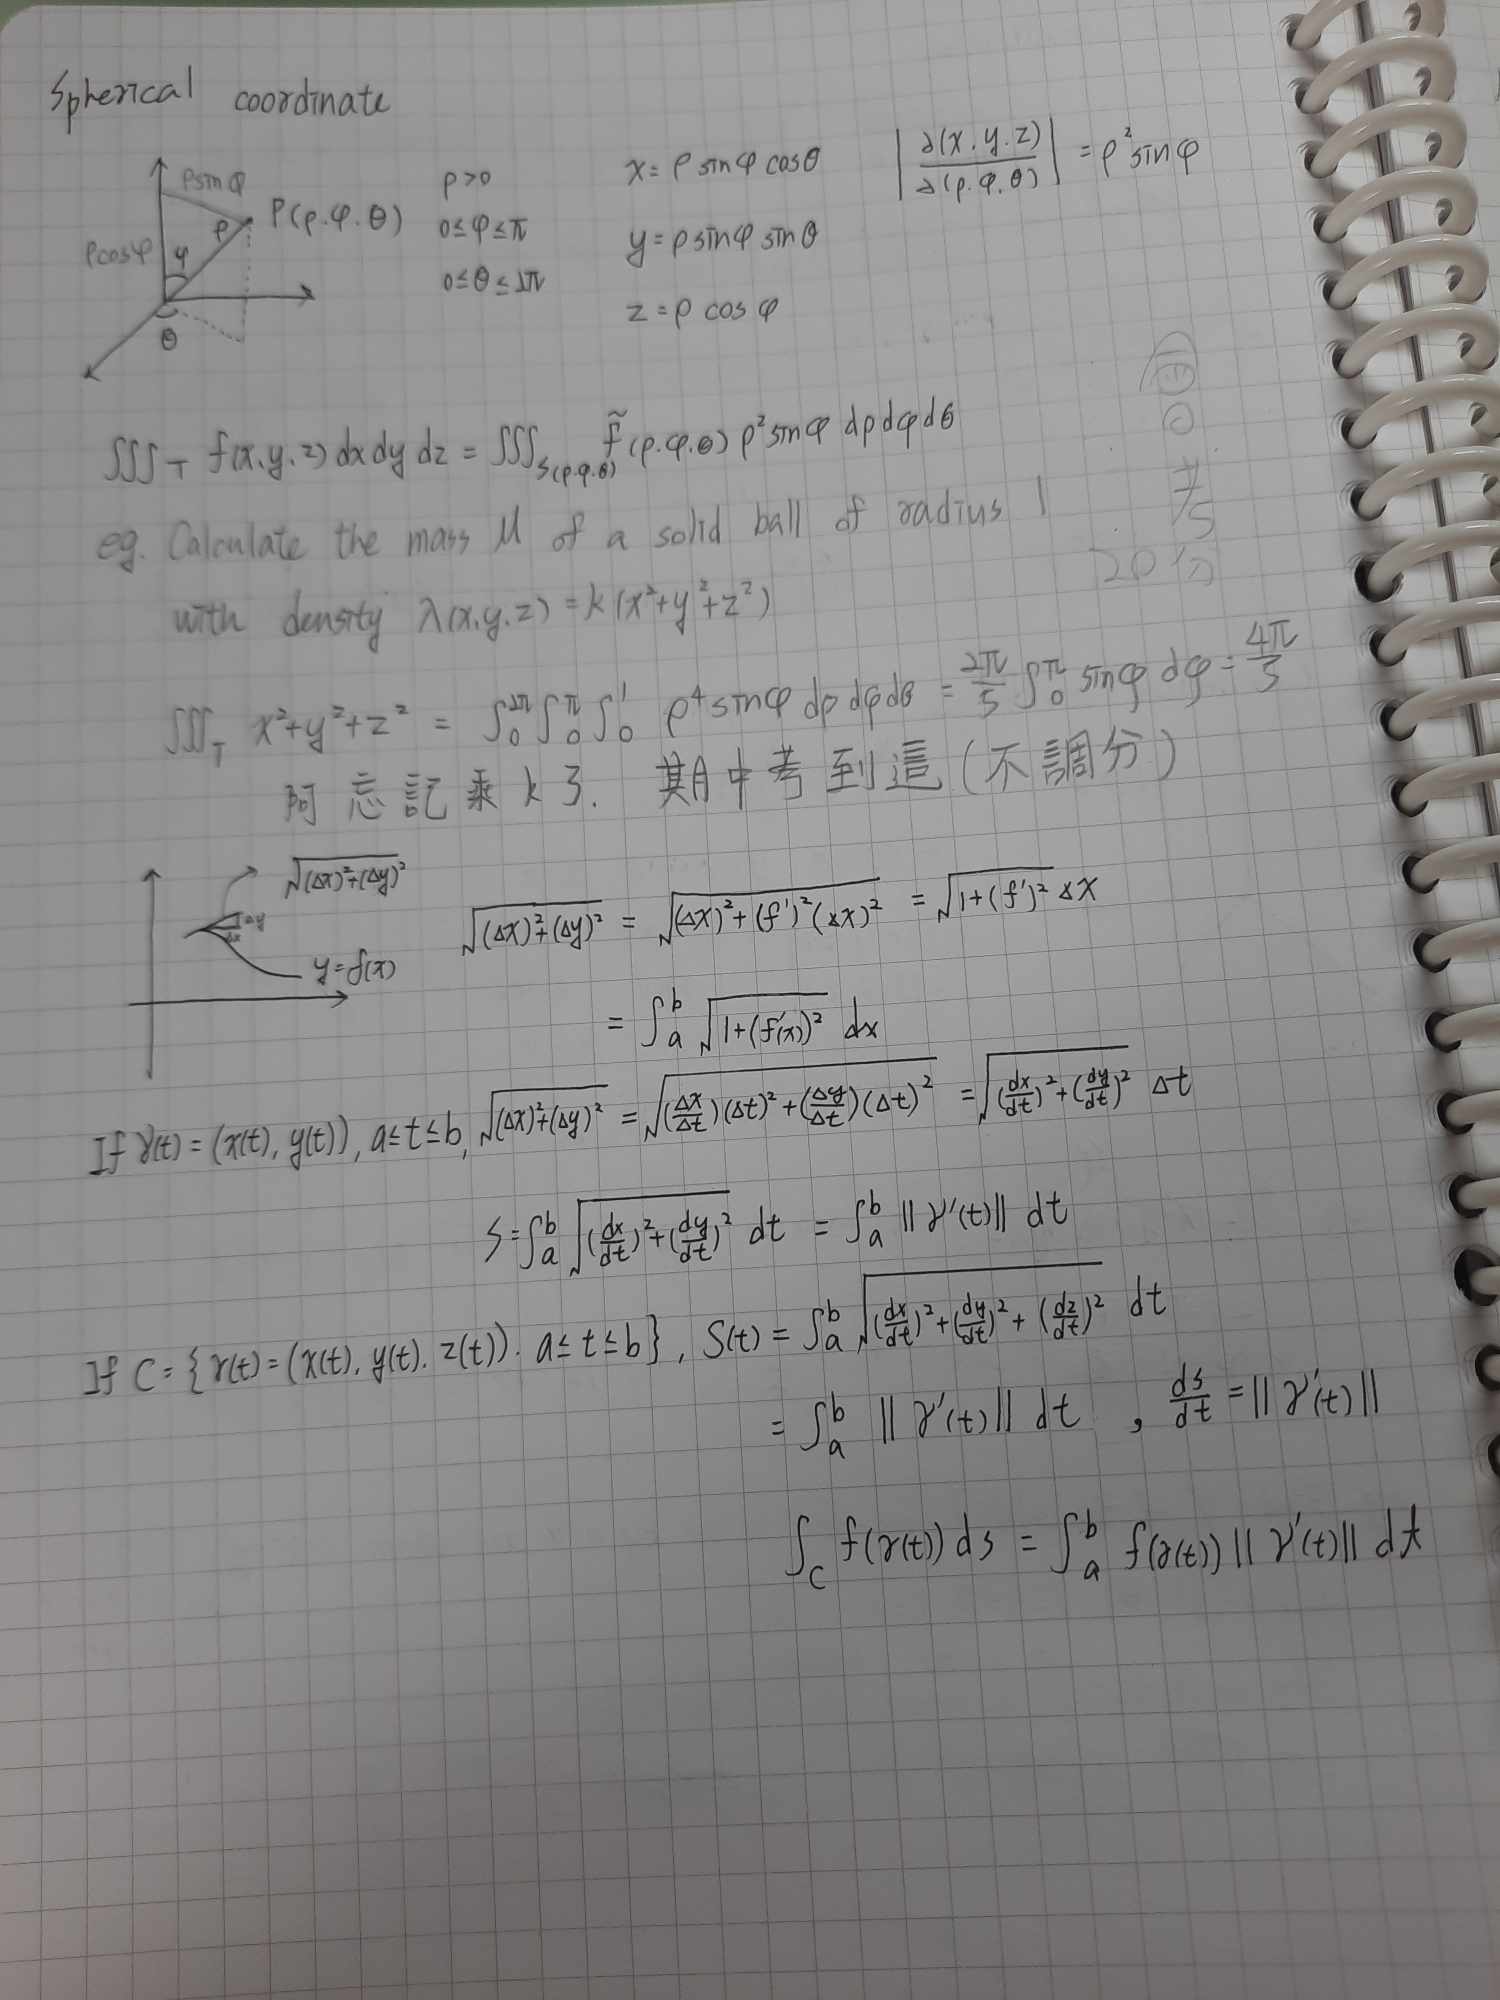 Spherical coordinate
ρsinφ
ρcosφ
φ
ρ
θ
P(ρ.φ.θ)
ρ>0
0≤φ≤π
0≤θ≤2π
x=ρsinφcosθ
y=ρsinφsinθ
z=ρcosφ
|∂(x.y.z)/∂(ρ.φ.θ)| = ρ²sinφ
∭_T f(x.y.z)dxdydz = ∭_S(ρ.φ.θ) f̃(ρ.φ.θ) ρ²sinφ dρdφdθ
eg. Calculate the mass M of a solid ball of radius 1
with density λ(x.y.z) = k(x²+y²+z²)
∭_T x²+y²+z² = ∫_0^2π ∫_0^π ∫_0^1 ρ⁴sinφ dρdφdθ = 2π/5 ∫_0^π sinφ dφ = 4π/5
阿忘記乘k了. 期中考到這(不調分)
20分
√(Δx)²+(Δy)²
Δy
Δx
y=f(x)
√(Δx)²+(Δy)² = √(Δx)²+(f')²(Δx)² = √1+(f')² Δx
= ∫_a^b √1+(f'(x))² dx
If γ(t)=(x(t),y(t)), a≤t≤b, √(Δx)²+(Δy)² = √(Δx/Δt)(Δt)²+(Δy/Δt)(Δt)² = √(dx/dt)²+(dy/dt)² Δt
S=∫_a^b √(dx/dt)²+(dy/dt)² dt = ∫_a^b ||γ'(t)|| dt
If C={γ(t)=(x(t),y(t).z(t)). a≤t≤b}, S(t) = ∫_a^b √(dx/dt)²+(dy/dt)²+(dz/dt)² dt
= ∫_a^b ||γ'(t)|| dt , ds/dt = ||γ'(t)||
∫_C f(γ(t)) ds = ∫_a^b f(γ(t)) ||γ'(t)|| dt